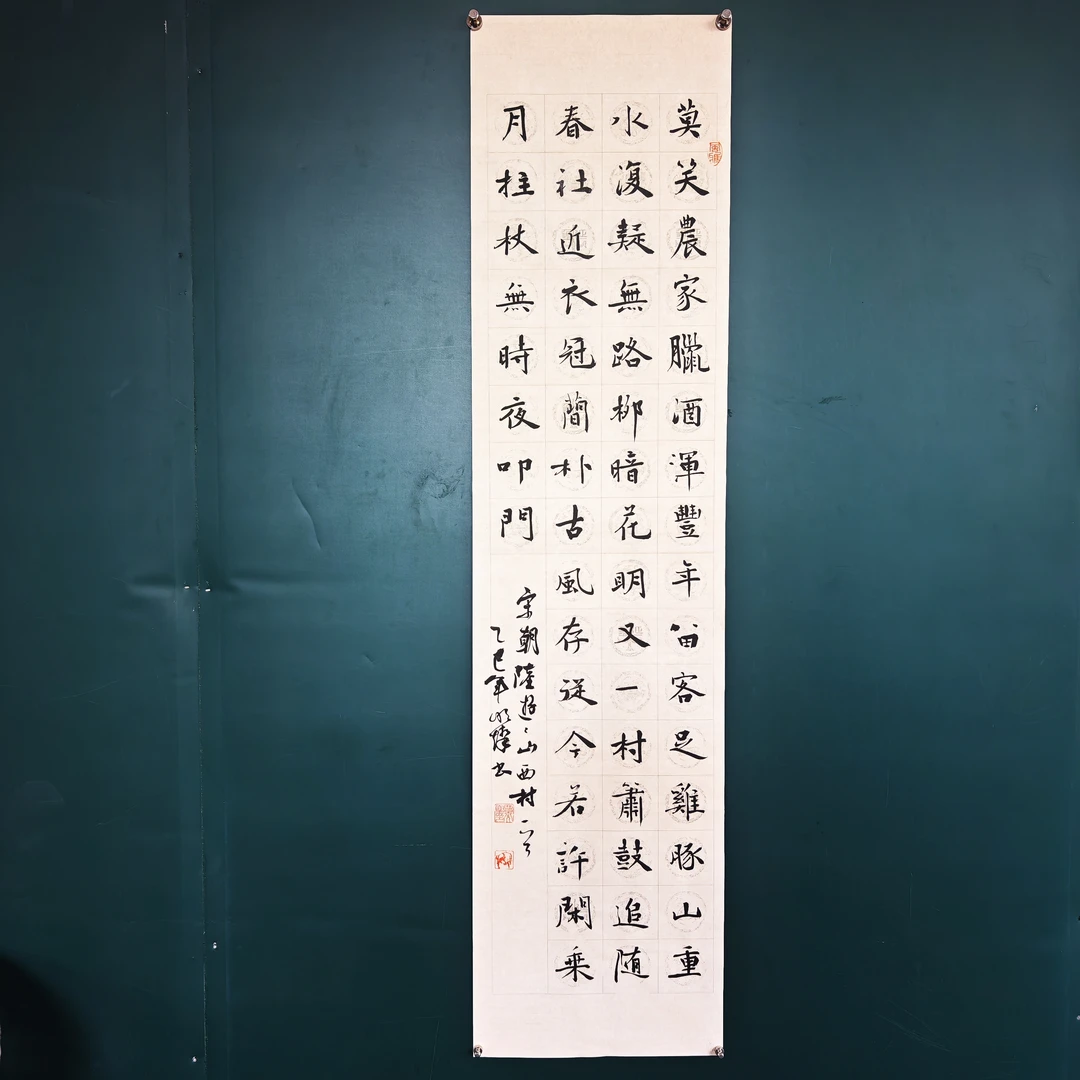 莫笑農家臘酒渾豐年留客足雞豚山重
水復疑無路柳暗花明又一村簫鼓追随
春社近衣冠簡朴古風存從今若許閑乗
月拄杖無時夜叩門
宋朝陸遊〻山西村一首
乙巳年书